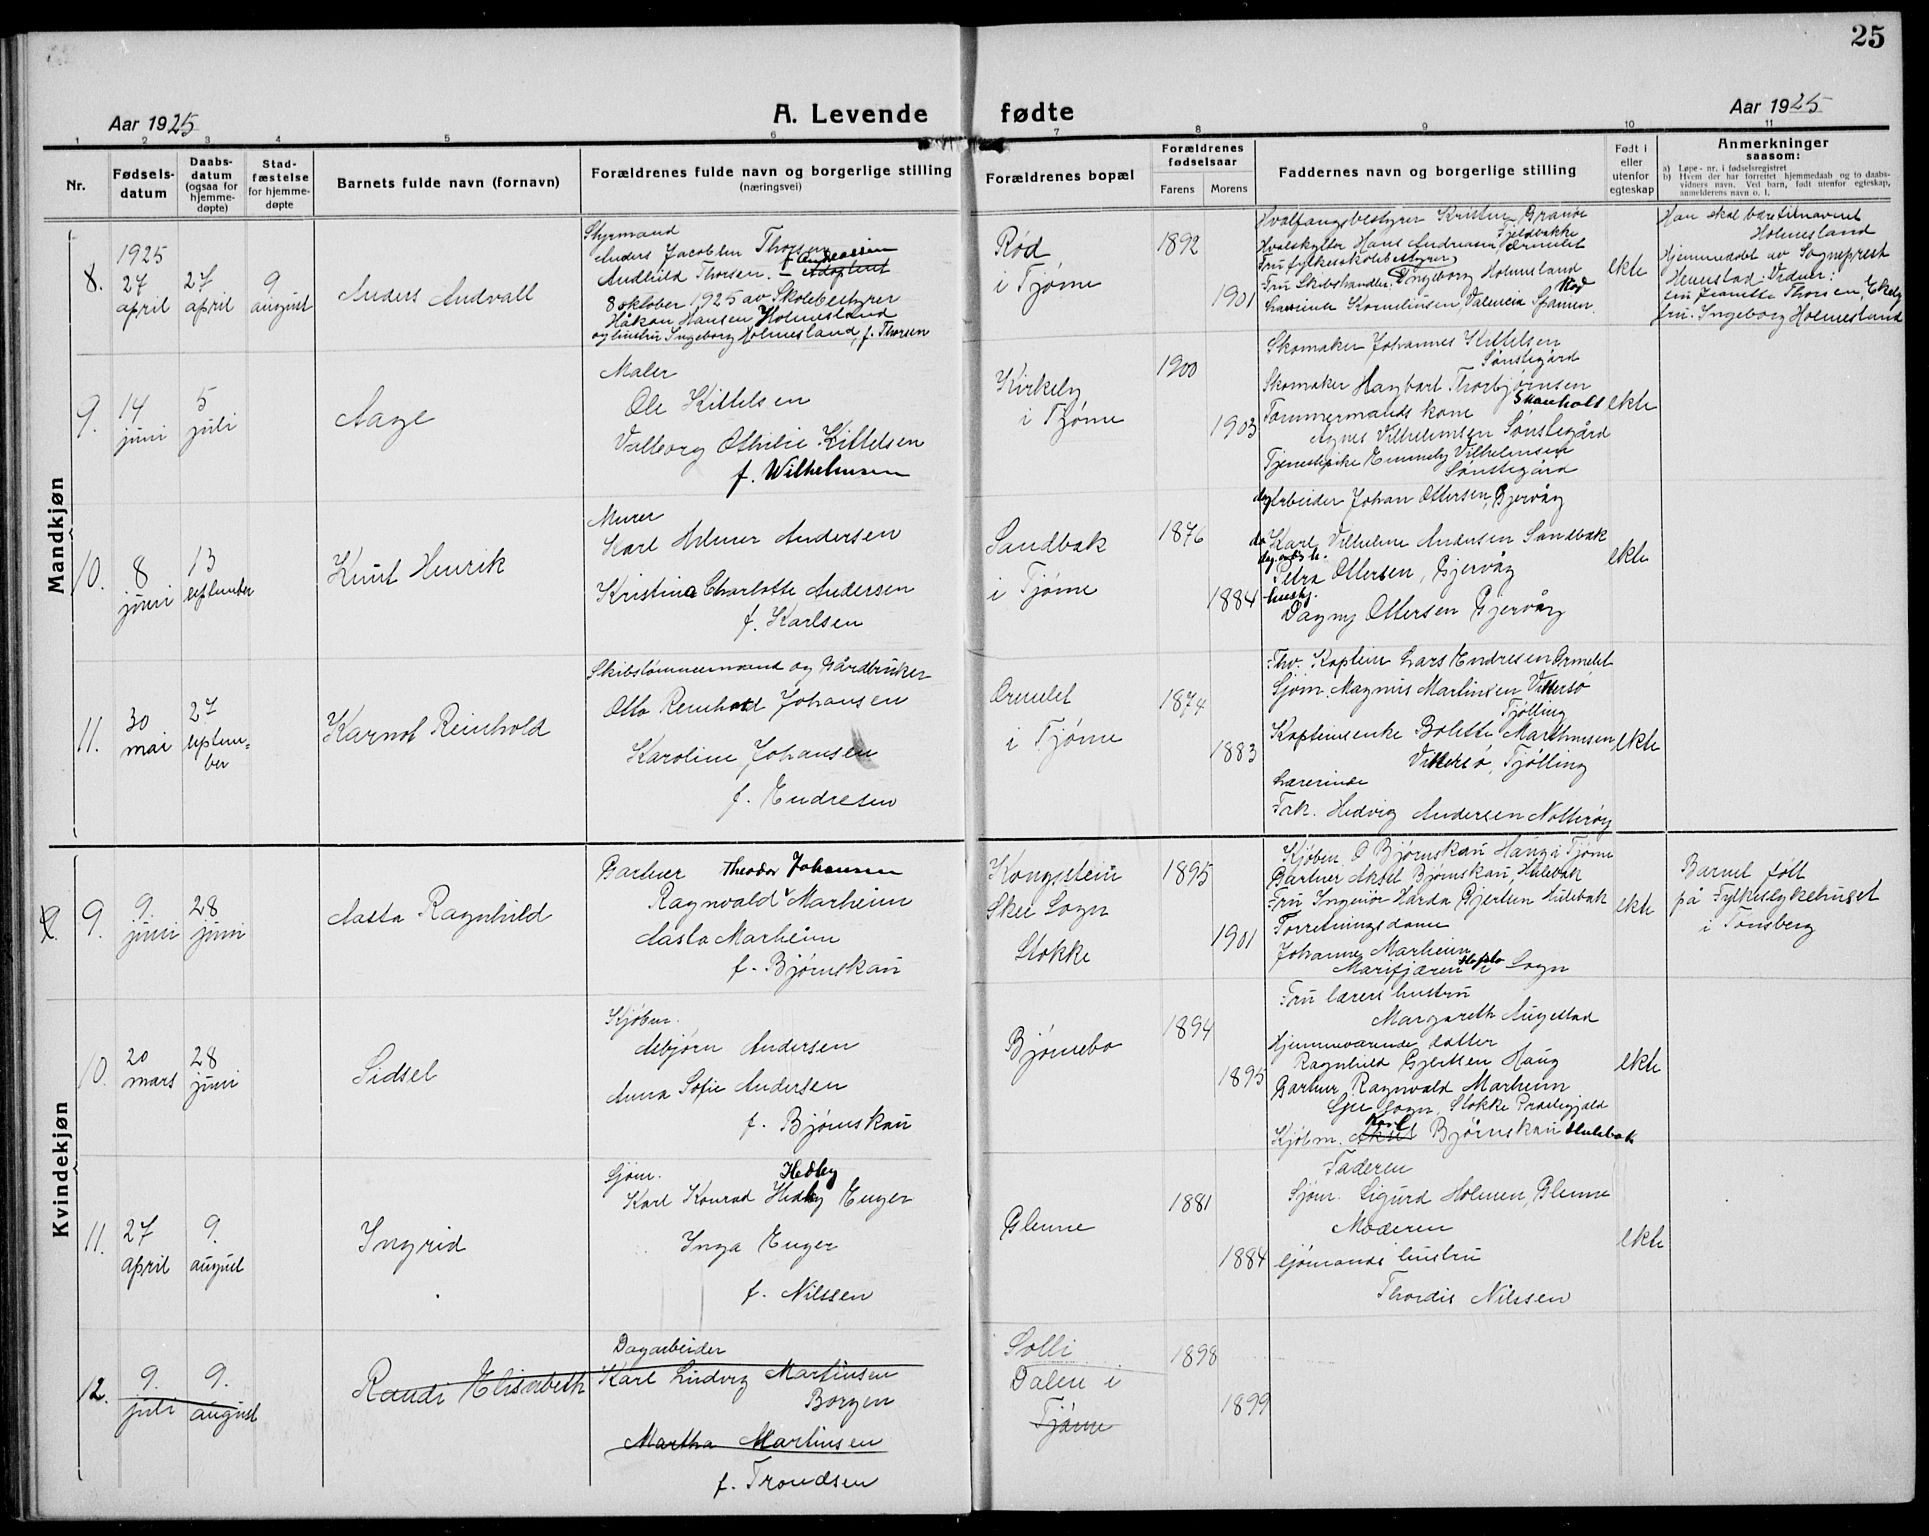 25
Aar 1925
A. Levende
fødte
Aar 1925
1 2 3 4 5 6 7 8 9 10 11
Nr.
Fødsels-
datum
Daabs-
datum
(ogsaa for
hjemme-
døpte)
Stad-
fæstelse
for hjemme-
døpte
Barnets fulde navn (fornavn)
Forældrenes fulde navn og borgerlige stilling
(næringsvei)
Forældrenes bopæl
Forældrenes
fødselsaar
Farens
Morens
Faddernes navn og borgerlige stilling
Født i
eller
utenfor
egteskap
Anmerkninger
saasom:
a) Løpe-nr. i fødselsregistret
b) Hvem der har forrettet hjemmedaab og to daabs-
vidners navn. Ved barn, født utenfor egteskap,
anmelderens navn o. l.
Mandkjøn
8.
1925
27
april
27
april
9
august
Anders Andvall
Styrmand
Anders Jacobsen Thorsen
f. Andreassen
Andhild Thorsen. – Adoptert
8 oktober 1925 av Skolebestyrer
Håkon Hansen Holmesland
og hustru Ingeborg Holmesland, f. Thorsen
Rød
i Tjøme
1892
1901
Hvalfangstbestyrer Kristen Granøe
Fjeldbakke
Hvalskytter Hans Andreasen, Ormelet
Fru fylkesskolebestyrer
Ingeborg Holmesland
Fru Skibshandler
Korneliusen, Valencia Spanien
ekte
Han skal bære tilnavnet
Holmesland
Hjemmedøbt av Sogneprest
Henestad. Vidner:
fru Jeanette Thorsen, Ekely
fru. Ingeborg Holmesland
9.
14
juni
5
juli
Aage
Maler
Ole Kittelsen
Valborg Othilie Kittelsen
f. Wilhelmsen
Kirkeby
i Tjøme
1900
1903
Skomaker Johannes Kittelsen
Sønstegård
Skomaker Hagbart Thorbjørnsen
Skauholt
Tømmermands kone
Agnes Vilhelmsen Sønstegård
Tjenestepike Emmely Vilhelmsen
Sønstegård
ekte
10.
8
juni
13
september
Knut Henrik
Murer
Karl Hilmer Andersen
Kristine Charlotte Andersen
f. Karlsen
Sandbæk
i Tjøme
1876
1884
dagarbeider Johan Ottersen, Gjervåg
do Karl Vilhelm Andersen Sandbæk
dag.arb. h.
Petra Ottersen, Gjervåg
hushj.
Dagny Ottersen Gjervåg
ekte
11.
30
mai
27
septem-
ber
Karnot Reinhold
Skibstømmermand og Gårdbruker
Otto Reinholdt Johansen
Karoline Johansen
f. Endresen
Ormelet
i Tjøme
1874
1883
Fhv. Kaptein Lars Endresen Ormelet
Sjøm. Magnus Martinsen Vittersø
Tjølling
Kapteinsenke Bolette Marthinsen
Vittersø, Tjølling
Lærerinde
Frk. Hedvig Andersen Nøtterøy
ekte
Kvindekjøn
9.
9
juni
28
juni
Aasta Ragnhild
Gartner Theodor Johannes
Ragnvald Marheim
Aasta Marheim
f. Bjørnskau
Kongsstein
Skee Sogn
Stokke
1895
1901
Kjøbm. O. Bjørnskau Haug i Tjøme
Gartner Aksel Bjørnskau, Hulebak
Fru Ingeniør Harda Gjertsen Hulebak
Forretningsdame
Johanne Marheim
Marifjæren Hafslo i Sogn
ekte
Barnet født
på Fylkessykehuset
i Tønsberg
10.
20
mars
28
juni
Sidsel
Kjøbm.
Asbjørn Andersen
Anna Sofie Andersen
f. Bjørnskau
Bjørnebo
1894
1895
Fru lærers hustru
Margareth Augestad
Hjemmeværende datter
Ragnhild Gjertsen Haug
Gartner, Ragnvald Marheim
Skee sogn, Stokke Prestegjæld
Karl
Kjøbm. Aksel Bjørnskau Hulebak
ekte
11.
27
april
9.
august
Ingrid
Sjøm. Hedley
Karl Konrad Hedley Enger
Inga Enger
f. Nilssen
Glenne
1881
1884
Faderen
Sjøm. Sigurd Holmen, Glenne
Moderen
Sjømands hustru
Thordis Nilssen
ekte
12.
9.
juli
9.
august
Randi Elisabeth
Dagarbeider
Karl Ludvig Martinsen
Borgen
Martha Martinsen
f. Trondsen
Solli
Dalen i
Tjøme
1898
1899